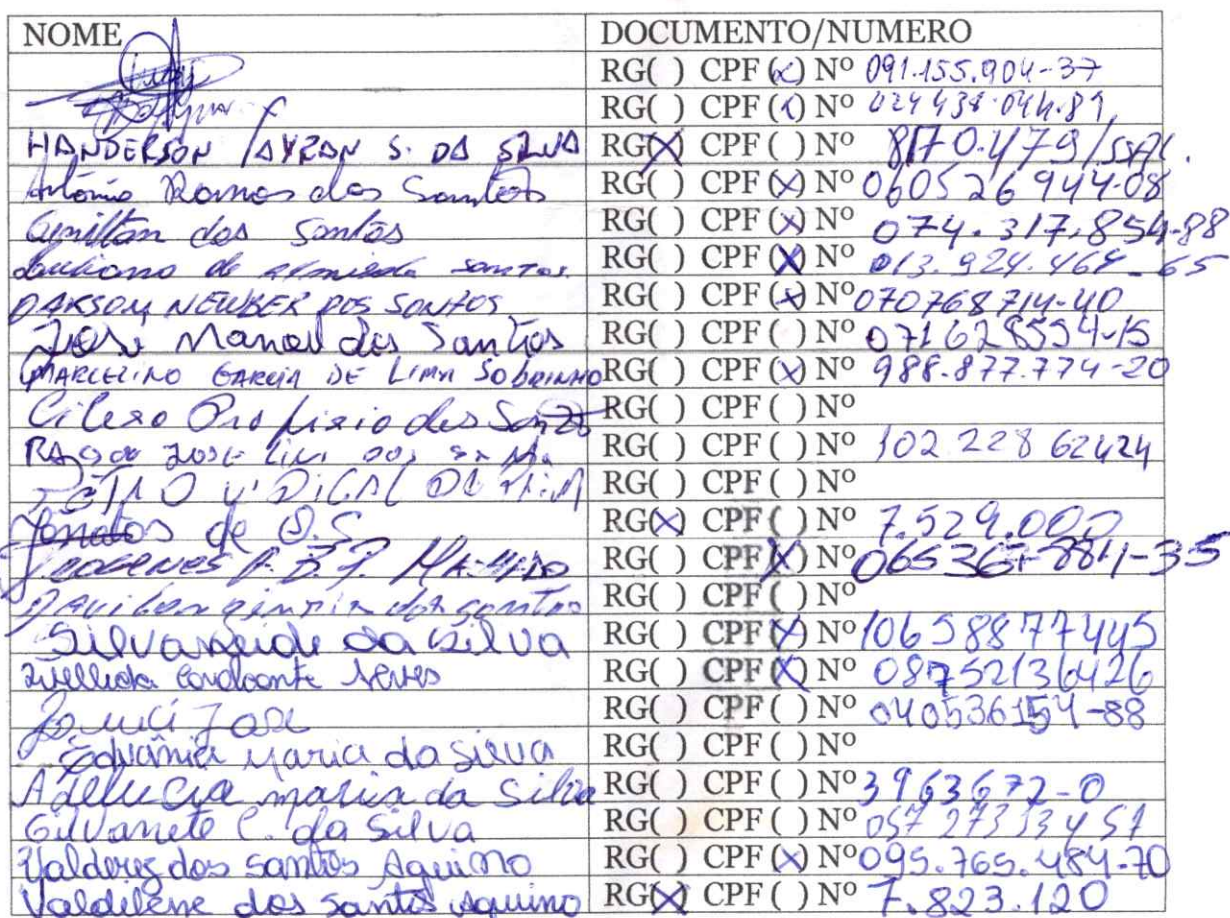 NOME DOCUMENTO/NUMERO
RG( ) CPF (x) Nº 091.155.904-37
RG( ) CPF (x) Nº 024 438.044.89
HANDERSON S. DA SILVA RG(X) CPF ( ) Nº 8170.479/SSPAL.
Antônio Ramos dos Santos RG( ) CPF (X) Nº 060526944-08
dos Santos RG( ) CPF (X) Nº 074.317.854-88
Luciano de almieda santos. RG( ) CPF (X) Nº 013.924.464-65
NEWBER DOS SANTOS RG( ) CPF (X) Nº 070768714-40
José Manoel dos Santos RG( ) CPF ( ) Nº 071628554-15
MARCELINO GARCIA DE LIMA SOBRINHO RG( ) CPF (X) Nº 988.877.774-20
Cicero dos RG( ) CPF ( ) Nº
JOSE DOS RG( ) CPF ( ) Nº 102 228 62424
RG( ) CPF ( ) Nº
de O.S RG(X) CPF ( ) Nº 7.529.000
RG( ) CPF (X) Nº 065367884-35
dos santos RG( ) CPF ( ) Nº
Silvaneide da Silva RG( ) CPF (X) Nº 10658877445
Cavalcante Neves RG( ) CPF (X) Nº 08752136426
José RG( ) CPF ( ) Nº 040536154-88
Edvânia Maria da Silva RG( ) CPF ( ) Nº
maria da Silva RG( ) CPF ( ) Nº 3963672-0
Gilvanete C. da Silva RG( ) CPF ( ) Nº 057 273 134 57
Valderez dos Santos Aquino RG( ) CPF (X) Nº 095.765.484-70
Valdilene dos Santos Aquino RG(X) CPF ( ) Nº 7.823.120